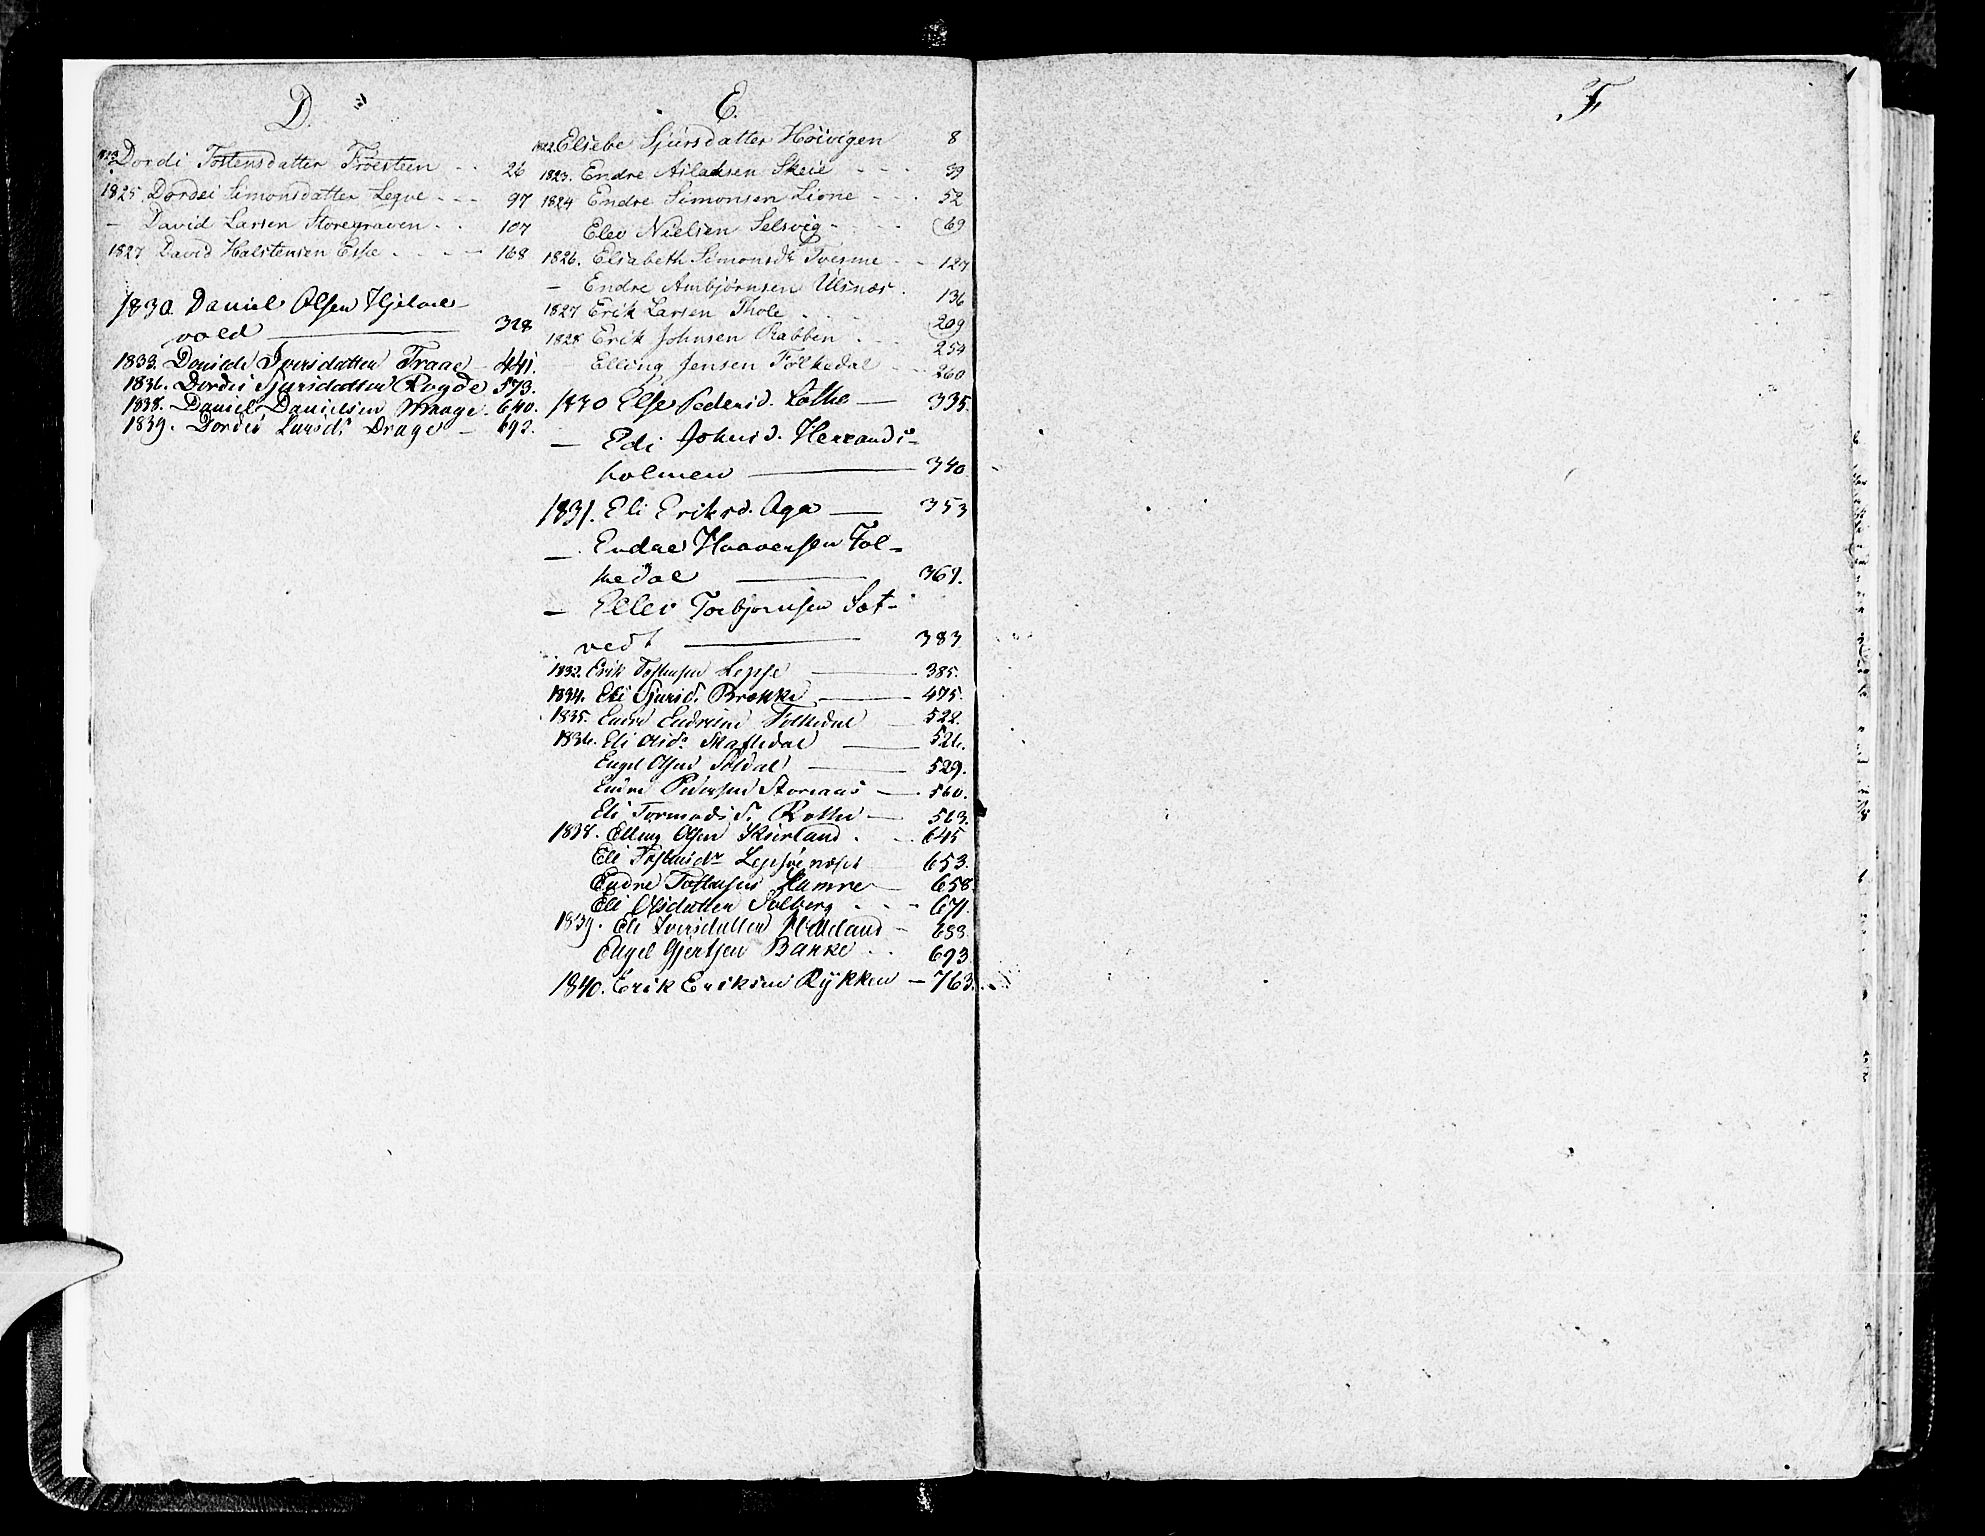 D.
1823. Dordi Tostensdatter Frøesteen - - 26
1825. Dordei Simonsdatter Legve - - - 97
- David Larsen Storegraven - - 107
1827 David Halstensen Espe - - - - 168
1830. Daniel Olsen Hjelme-
vold — 328
1833. Iversdatter Traae - 441.
1836. Dordei Sjursdatter Rogde 573.
1838. Daniel Danielsen - 640.
1839. Dordei Larsd. Drage - 692.
E.
1822. Elsebe Sjursdatter Høivigen 8
1823. Endre Aslaksen Skeie - - - 39
1824 Endre Simonsen Lione - - - 52
Elev Nielsen Selsvig - - - 69
1826. Elsabeth Simonsdr Tvesme - - 127
- Endre Ambjørnsen Ulsnæs. 136
1827 Erik Larsen Thole - - - 209
1828 Erik Johnsen Rabben - - 254
- Elling Jensen Folkedal - - 260
1830 Else Pedersd. Lothe — 335.
- Edi Johnsd. Herrands-
holmen — 340
1831. Eli Eriksd. Aga — 353
- Endre Haavensen Fol-
kedal — 367.
- Ellev Torbjørnsen Sæt-
vedt — 383
1832. Erik Tostensen Lepse — 385.
1834. Eli Sjursd. Brække — 475.
1835. Endre Endresen Folkedal — 522.
1836. Eli Olsdr Skaftedal — 526.
Engel Olsen Soldal — 529.
Endre Pedersen Storaas — 560.
Eli Tormodsdr — 563.
1838. Elling Olsen Skierland - - 645
Eli Tostensdr Lepsøenæset 653.
Endre Tostensen Hamre — 658
Eli Olsdatter Solberg - - - 671.
1839. Eli Iversdatter - 683.
Engel Gjertsen Bakke - - 693
1840. Erik Eriksen Rykken — 763.
F.
1